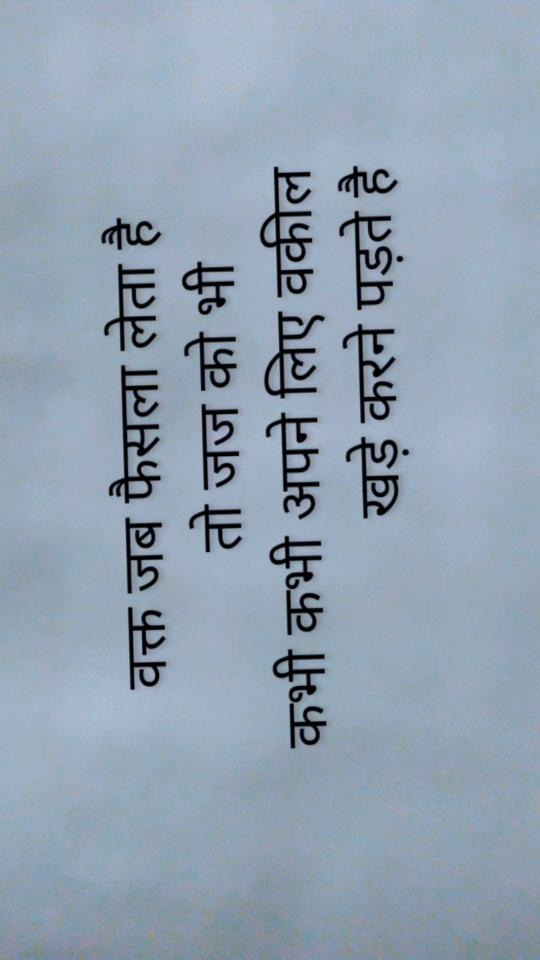 वक्त जब फैसला लेता है
तो जज को भी
कभी कभी अपने लिए वकील
खड़े करने पड़ते है